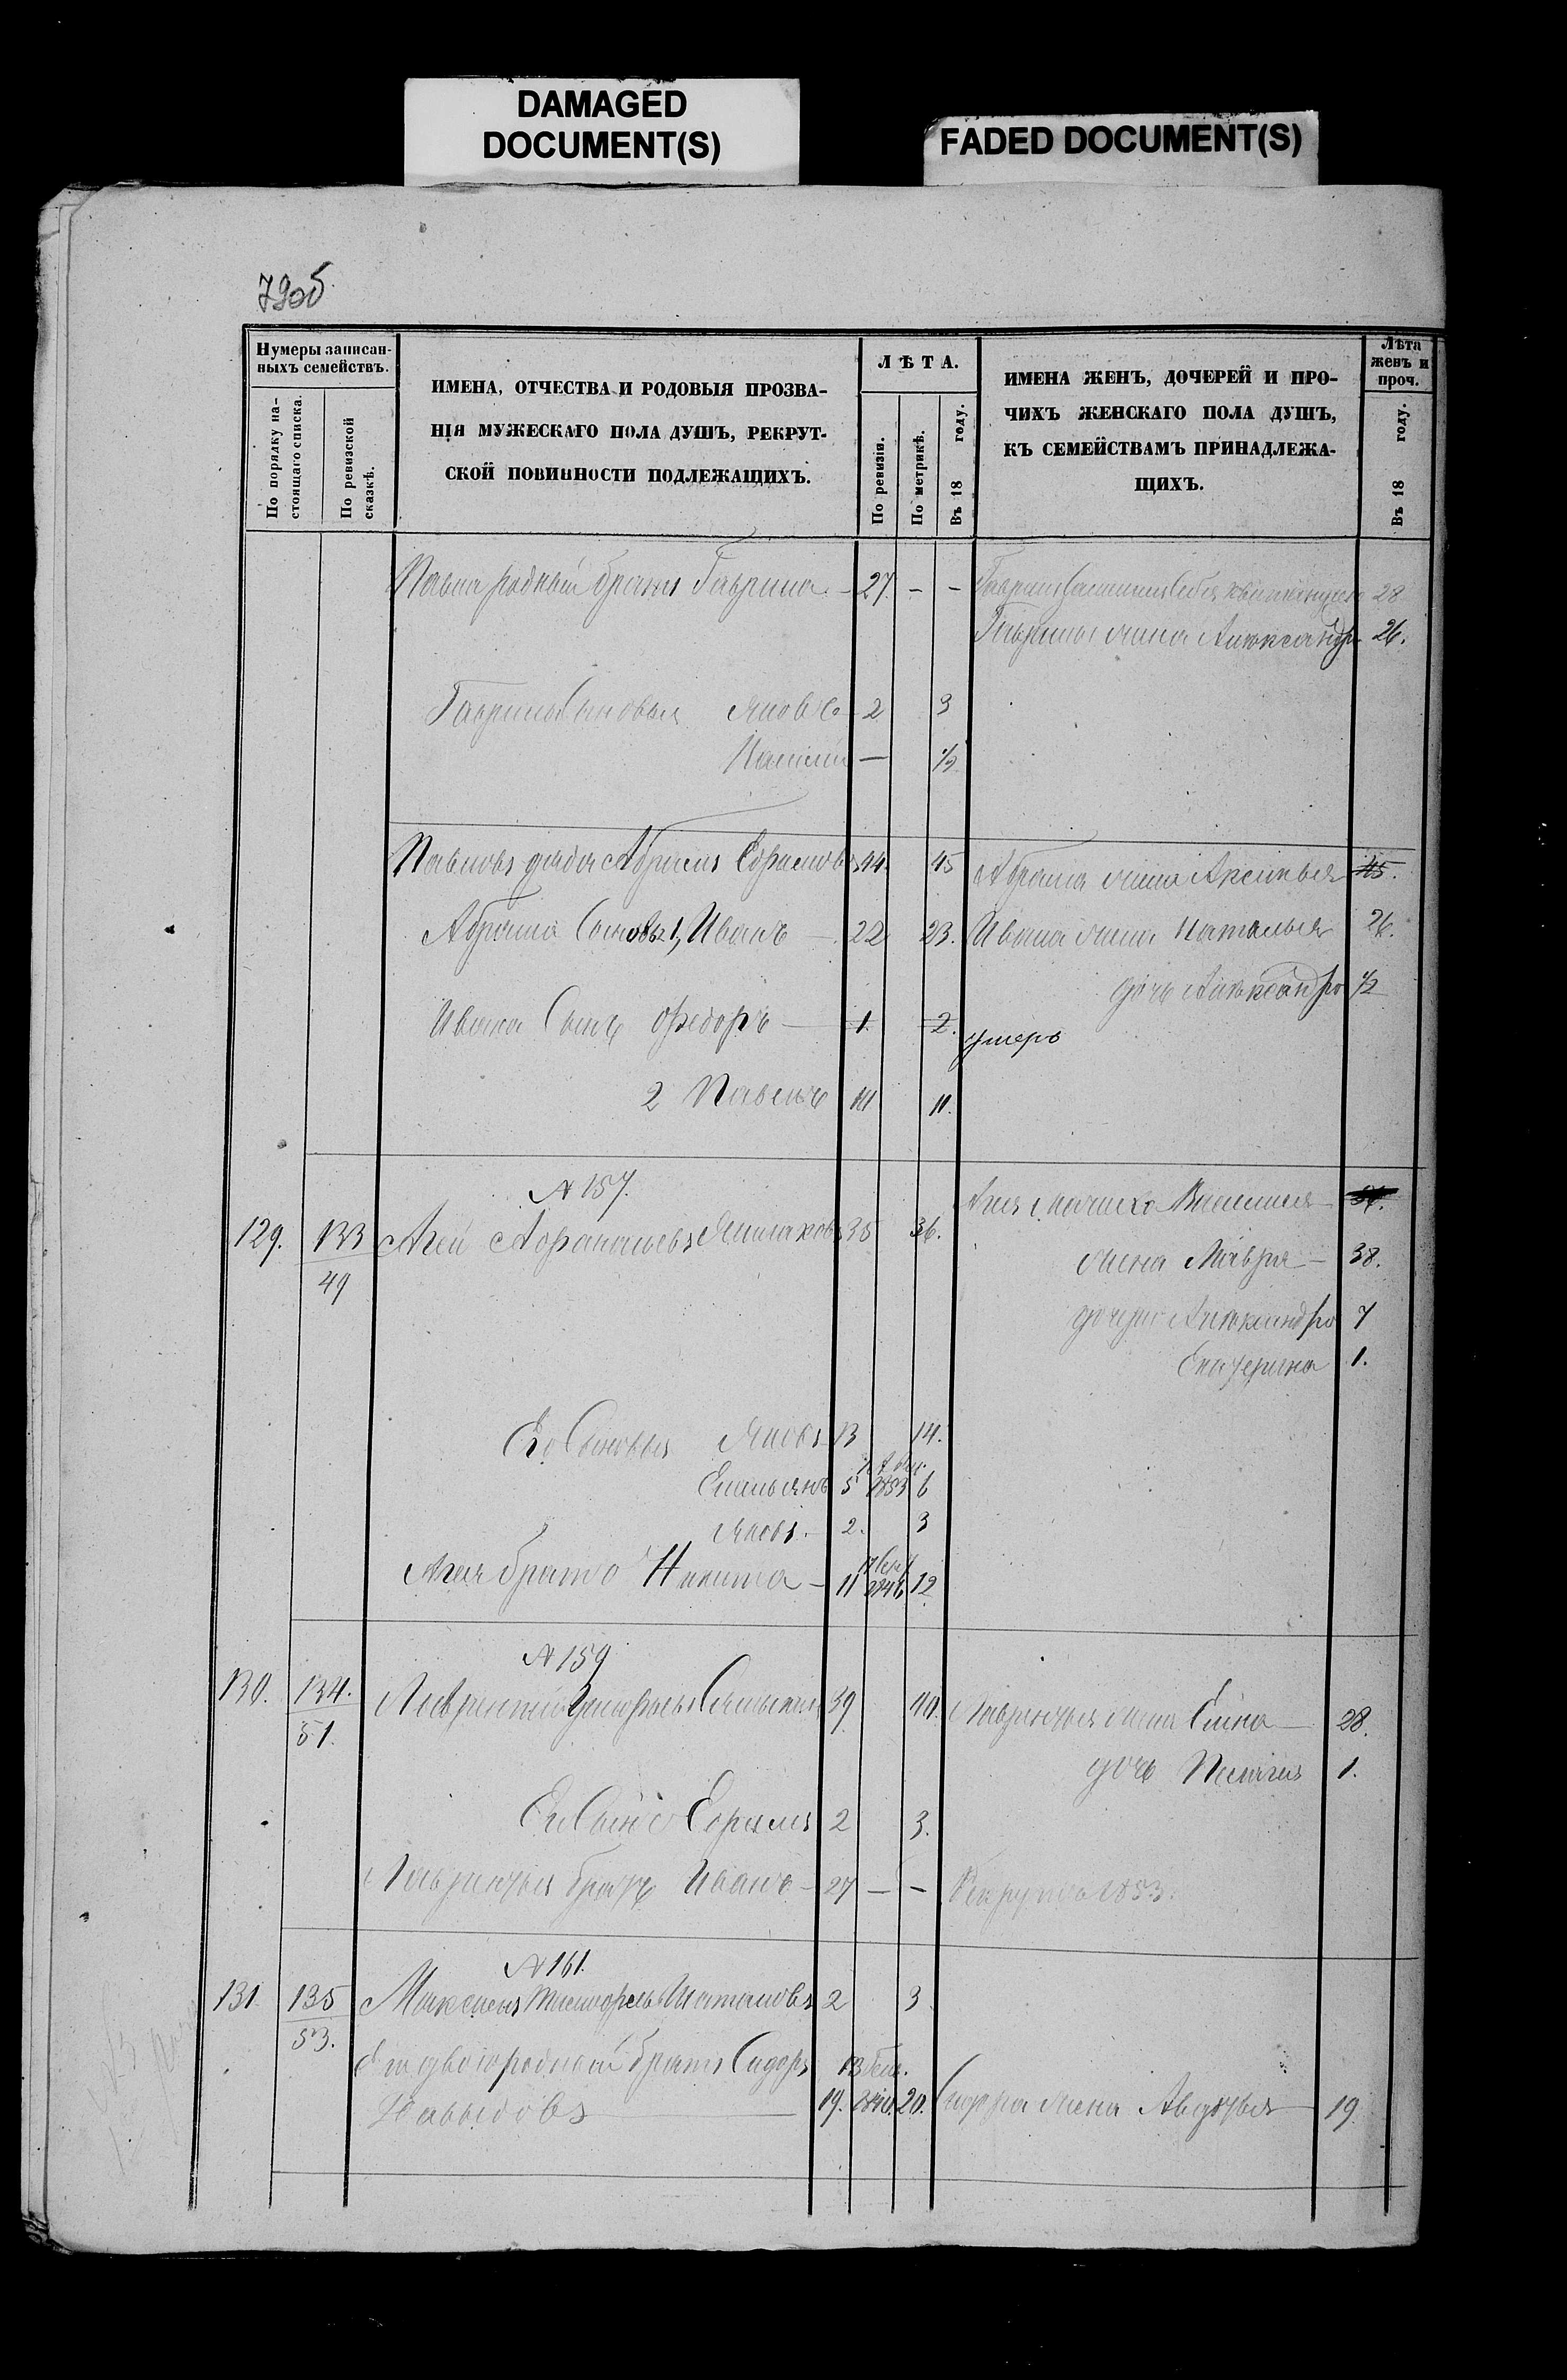 DAMAGED
DOCUMENT(S)
FADED DOCUMENT(S)
79об
Нумеры записан-
ныхъ семействъ.
По порядку на-
стоящаго списка.
По ревизской
сказкѣ.
ИМЕНА, ОТЧЕСТВА И РОДОВЫЯ ПРОЗВА-
НІЯ МУЖЕСКАГО ПОЛА ДУШЪ, РЕКРУТ-
СКОЙ ПОВИННОСТИ ПОДЛЕЖАЩИХЪ.
ЛѢТА.
По ревизіи.
По метрикѣ.
Въ 18 году.
ИМЕНА ЖЕНЪ, ДОЧЕРЕЙ И ПРО-
ЧИХЪ ЖЕНСКАГО ПОЛА ДУШЪ,
КЪ СЕМЕЙСТВАМЪ ПРИНАДЛЕЖА-
ЩИХЪ.
Лѣта
женъ и
проч.
Въ 18 году.
Павла родный братъ Гаврила — 27. - - 28
Гаврилы жена Александра 26.
Гаврилы Сыновья Яковъ 2 3
— ½
Павловъ дядя Абрамъ Ефремовъ 44. 45 Абрама жена Аксинья 45.
Абрама Сыновья 1, Иванъ — 22 23. Ивана жена Наталья 26.
дочь Александра ½
Ивана Сынъ Федоръ — 1. 2. умеръ
2 Павелъ 10 11.
N 157.
Агея мачиха
129. 133/49 Агей Афанасьевъ 35 36.
жена Мавра — 38.
дочери Александра 7
Екатерина 1.
Его Сыновья Яковъ 13 14.
Емельянъ 5 1853 6
Яковъ. — 2. 3
Агея братъ Никита — 11 12
N 159
130. 134./51. Лаврентій Григорьевъ 39 40. Лаврентья жена Елена — 28.
дочь Пелагея 1.
Его Сынъ Ефремъ 2 3.
Лаврентья братъ Иванъ — 27 — - Рекрутъ 1853.
N 161.
131. 135/53. Максимъ Тимофеевъ 2 3.
Его двоюродный братъ Сидоръ
Давыдовъ — 19. 20. Сидора жена Авдотья — 19.